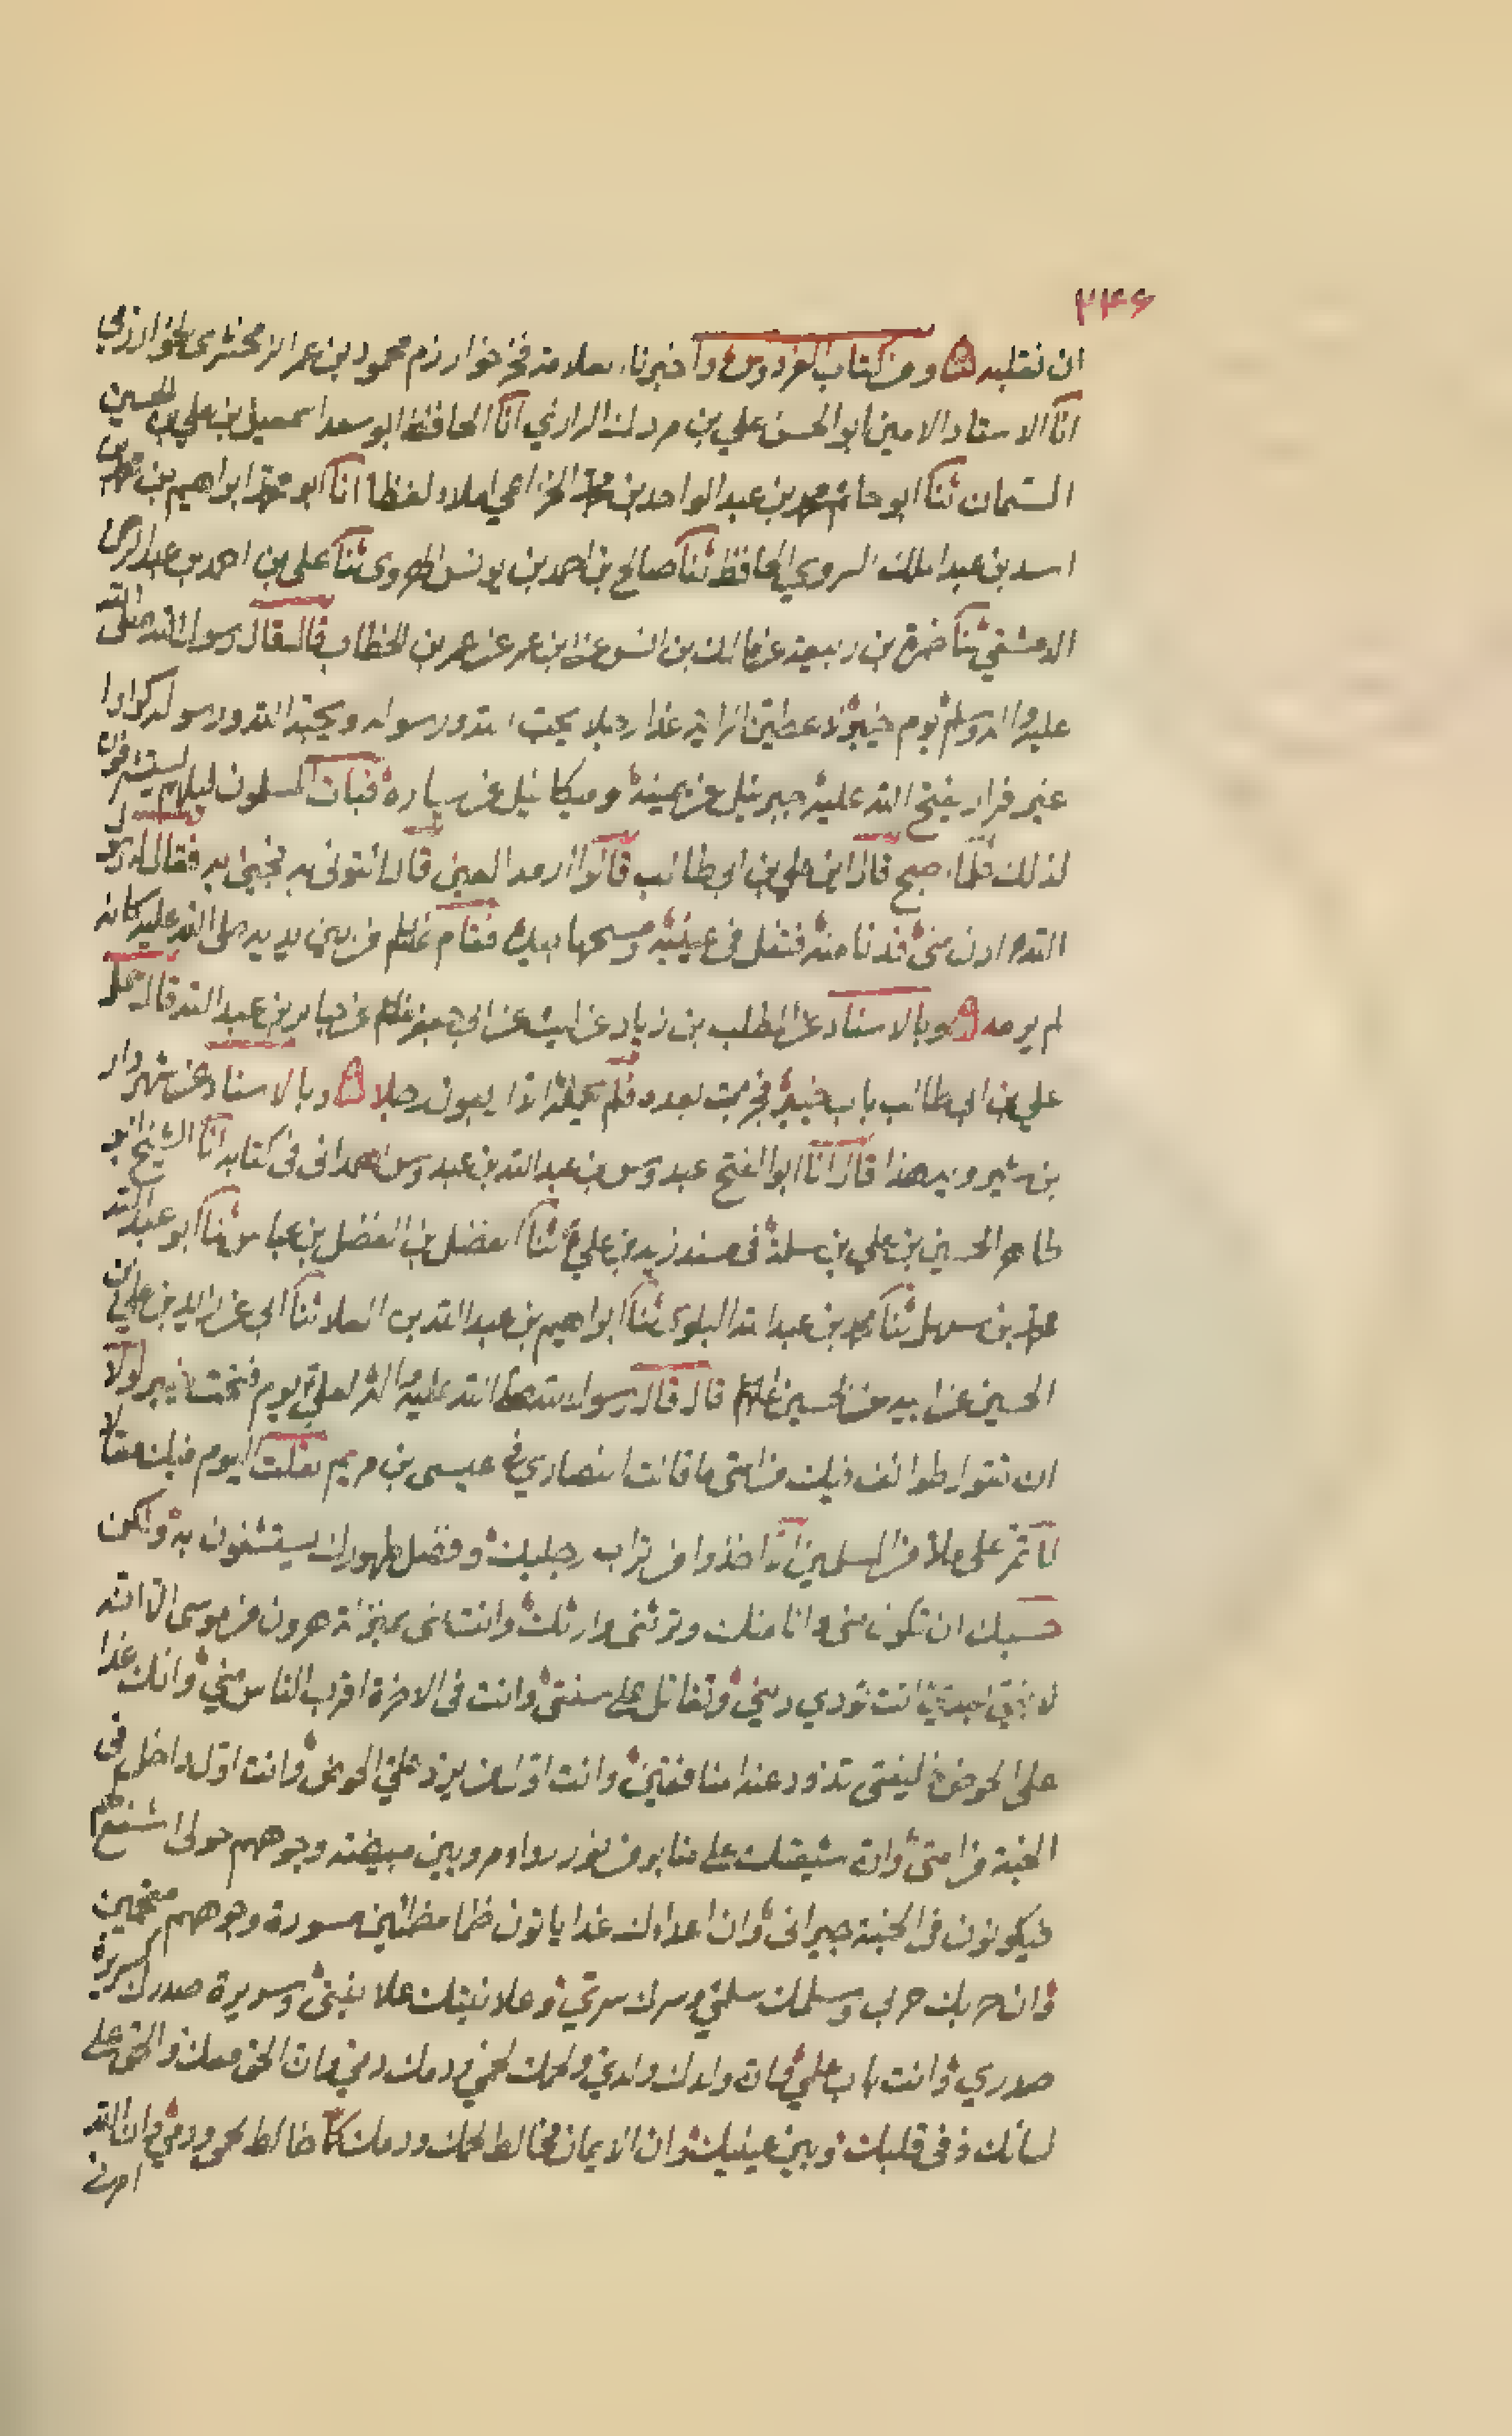 ۲۴۶
ان نقلبه ومن كتاب الفردوس واخبرنا العلامة فخر خوارزم محمود بن عمر الزمخشري الخوارزمي
انا الاستاد الامين ابو الحسن علي بن مردك الرازي انا الحافظ ابو سعد اسمعيل بن علي بن الحسين
السمان ثنا ابو حاتم محمد بن عبد الواحد بن محمد الخزاعي املاء لفظا انا ابو محمد ابراهيم بن محمد بن
اسد بن عبد الملك الروي الحافظ ثنا صالح بن احمد بن يونس الهروي ثنا علي بن احمد بن عبد الرحمن
الدمشقي ثنا ضمرة بن ربيعة عن مالك بن انس عن ابن عمر عن عمر بن الخطاب قال قال رسول الله صلى الله
عليه واله وسلم يوم خيبر لاعطين الراية غدا رجلا يحب الله ورسوله ويحبه الله ورسوله كرارا
غير فرار يفتح الله عليه جبرئيل عن يمينه وميكائيل عن يساره فبات المسلمون ليلهم يستشرفون
لذلك فلما اصبح قال اين علي بن ابي طالب قالوا ارمد العين قال ائتوني به فجئ به فقال له رسول
الله ادن مني فدنا منه فتفل في عينيه ومسحها بيده فقام من بين يديه صلى الله عليه كانه
لم يرمد وبالاسناد عن المطلب بن زياد عن ليث عن ابي جعفر عن جابر بن عبد الله قال حمل
علي بن ابي طالب باب خيبر فجربت بعده فلم يحمله الا اربعون رجلا وبالاسناد عن شهردار
بن شيرويه هذا قال انا ابو الفتح عبدوس بن عبد الله بن عبدوس الهمداني في كتابه انا الشيخ ابو
طاهر الحسين بن علي بن سلمة في مسند زيد بن علي ثنا الفضل بن الفضل بن عباس ثنا ابو عبد الله
محمد بن سهل ثنا محمد بن عبد الله البلوى ثنا ابراهيم بن عبد الله بن العلا ثنا ابي عن زيد بن علي بن
الحسين عن ابيه عن الحسين قال قال رسول الله صلى الله عليه واله لعلي يوم فتحت خيبر لولا
ان تقول طوائف فيك من امتى ما قالت النصاري في عيسى بن مريم لقلت اليوم فيك مقالا
لا تمر على ملأ من المسلمين الا اخذوا من تراب رجليك وفضل طهورك يستشفون به ولكن
حسبك ان تكون مني وانا منك وترثني وارثك وانت مني بمنزلة هرون من موسى الا انه
لا نبي بعدي انت تؤدي ديني وتقاتل على سنتي وانت في الاخرة اقرب الناس مني وانك غدا
على الحوض خليفتى تذود عنه المنافقين وانت اول من يرد علي الحوض وانت اول داخل في
الجنة من امتى وان شيعتك على منابر من نور رواء مرويين مبيضة وجوههم حولى اشفع لهم
فيكونون في الجنة جيراني وان اعداءك غدا ياتون ظما مظمئين مسودة وجوههم مقمحين
وان حربك حربي وسلمك سلمي وسرك سري وعلانيتك علانيتي وسريرة صدرك كسريرة
صدري وانت باب علمي وان ولدك ولدي ولحمك لحمي ودمك دمي وان الحق معك والحق على
لسانك وفي قلبك وبين عينيك وان الايمان مخالط لحمك ودمك كما خالط لحمي ودمي وان الله
امرني